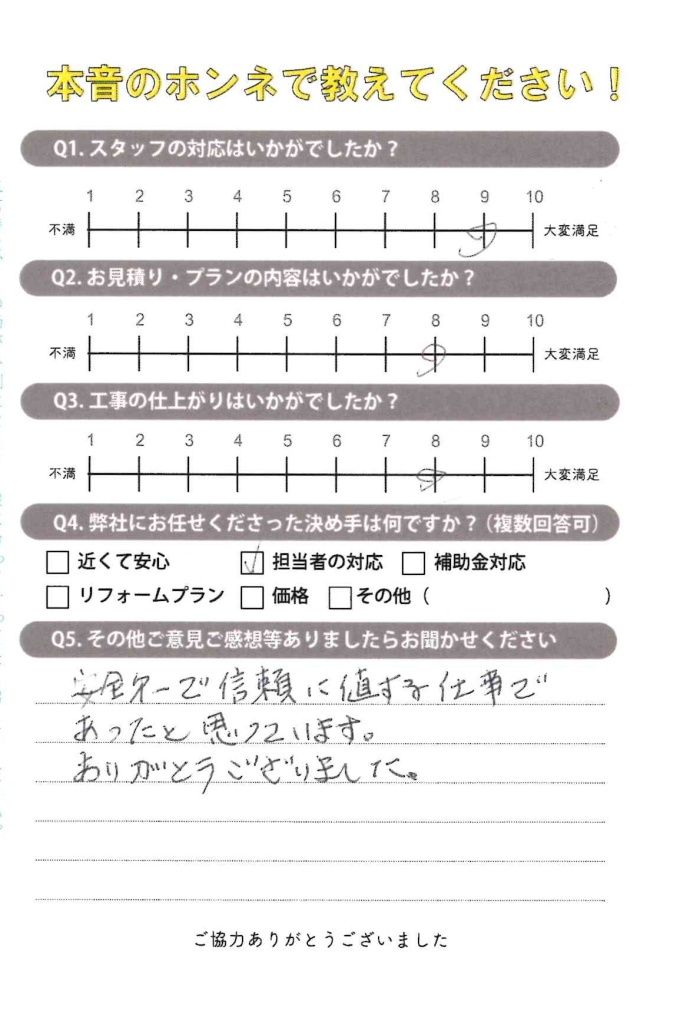 本音のホンネで教えてください！
Q1. スタッフの対応はいかがでしたか？
1 2 3 4 5 6 7 8 9 10
不満 大変満足
Q2. お見積り・プランの内容はいかがでしたか？
1 2 3 4 5 6 7 8 9 10
不満 大変満足
Q3. 工事の仕上がりはいかがでしたか？
1 2 3 4 5 6 7 8 9 10
不満 大変満足
Q4. 弊社にお任せくださった決め手は何ですか？（複数回答可）
近くて安心 担当者の対応 補助金対応
リフォームプラン 価格 その他（ ）
Q5. その他ご意見ご感想等ありましたらお聞かせください
安全第一で信頼に値する仕事で
あったと思っています。
ありがとうございました。
ご協力ありがとうございました